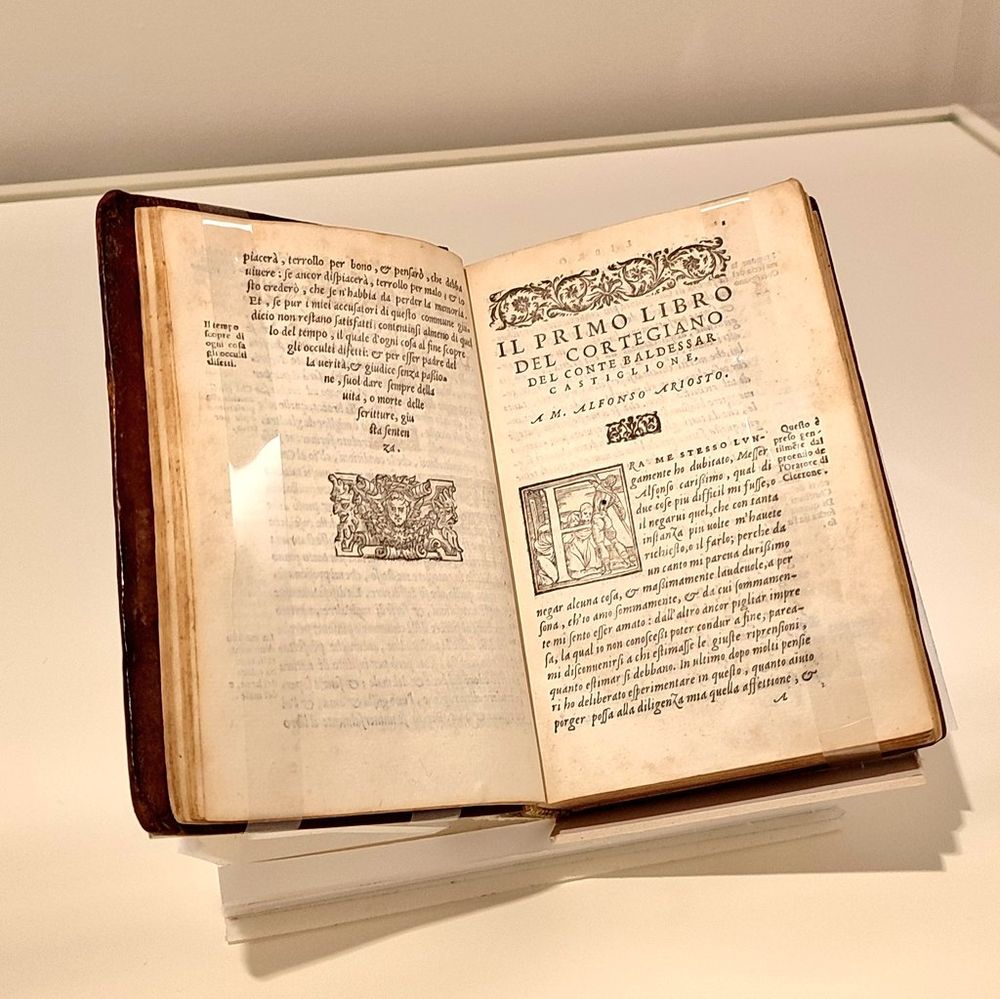 piacerà, terrollo per bono, & pensarò, che debba
uiuere: se ancor dispiacerà, terrollo per malo; & to
sto crederò, che je n'habbia da perder la memoria.
Et, se pur i miei accusatori di questo commune giu
dicio non restano satisfatti; contentinsi almeno di quel
lo del tempo, il quale d'ogni cosa al fine scopre
gli occulti difetti: & per esser padre del
la uerità, & giudice senza passio-
ne, suol dare sempre della
uita, o morte delle
scritture, giu
sta senten
za.
Il tempo
scopre di
ogni cosa
gli occulti
difetti.
IL PRIMO LIBRO
DEL CORTEGIANO
DEL CONTE BALDESSAR
CASTIGLIONE,
A M. ALFONSO ARIOSTO.
FRA ME STESSO LVN-
gamente ho dubitato, Messer
Alfonso carissimo, qual di
due cose piu difficil mi fusse, o
il negarui quel, che con tanta
instanza piu uolte m'hauete
richiesto, o il farlo; perche da
un canto mi pareua durissimo
negar alcuna cosa, & massimamente laudeuole, a per
sona, ch'io amo sommamente, & da cui sommamen-
te mi sento esser amato: dall'altro ancor pigliar impre
sa, la qual io non conoscessi poter condur a fine, parea-
mi disconuenirsi a chi estimasse le giuste riprensioni,
quanto estimar si debbano. In ultimo dopo molti pensie
ri ho deliberato esperimentare in questo, quanto aiuto
porger possa alla diligenza mia quella affettione, &
A
Questo è
preso gen-
tilmẽte dal
proemio de
l'Oratore di
Cicerone.